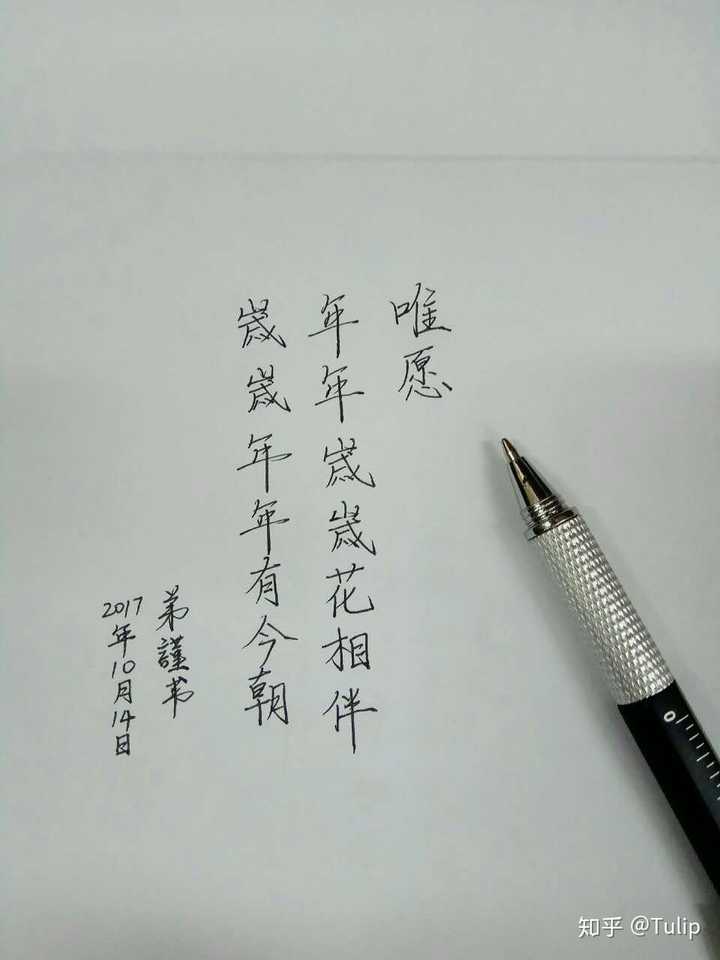 唯愿
年年嵗嵗花相伴
嵗嵗年年有今朝
弟謹书
2017年10月14日
0
知乎 @Tulip